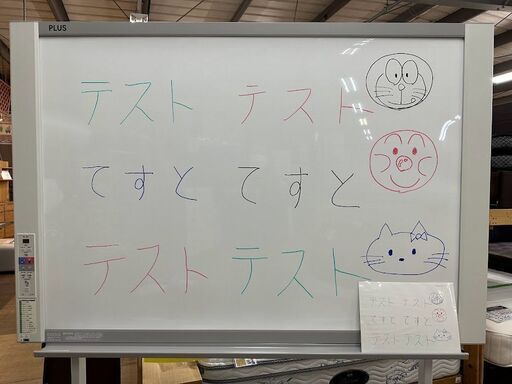 PLUS
テスト テスト
てすと てすと
テスト テスト
テスト テスト
てすと てすと
テスト テスト